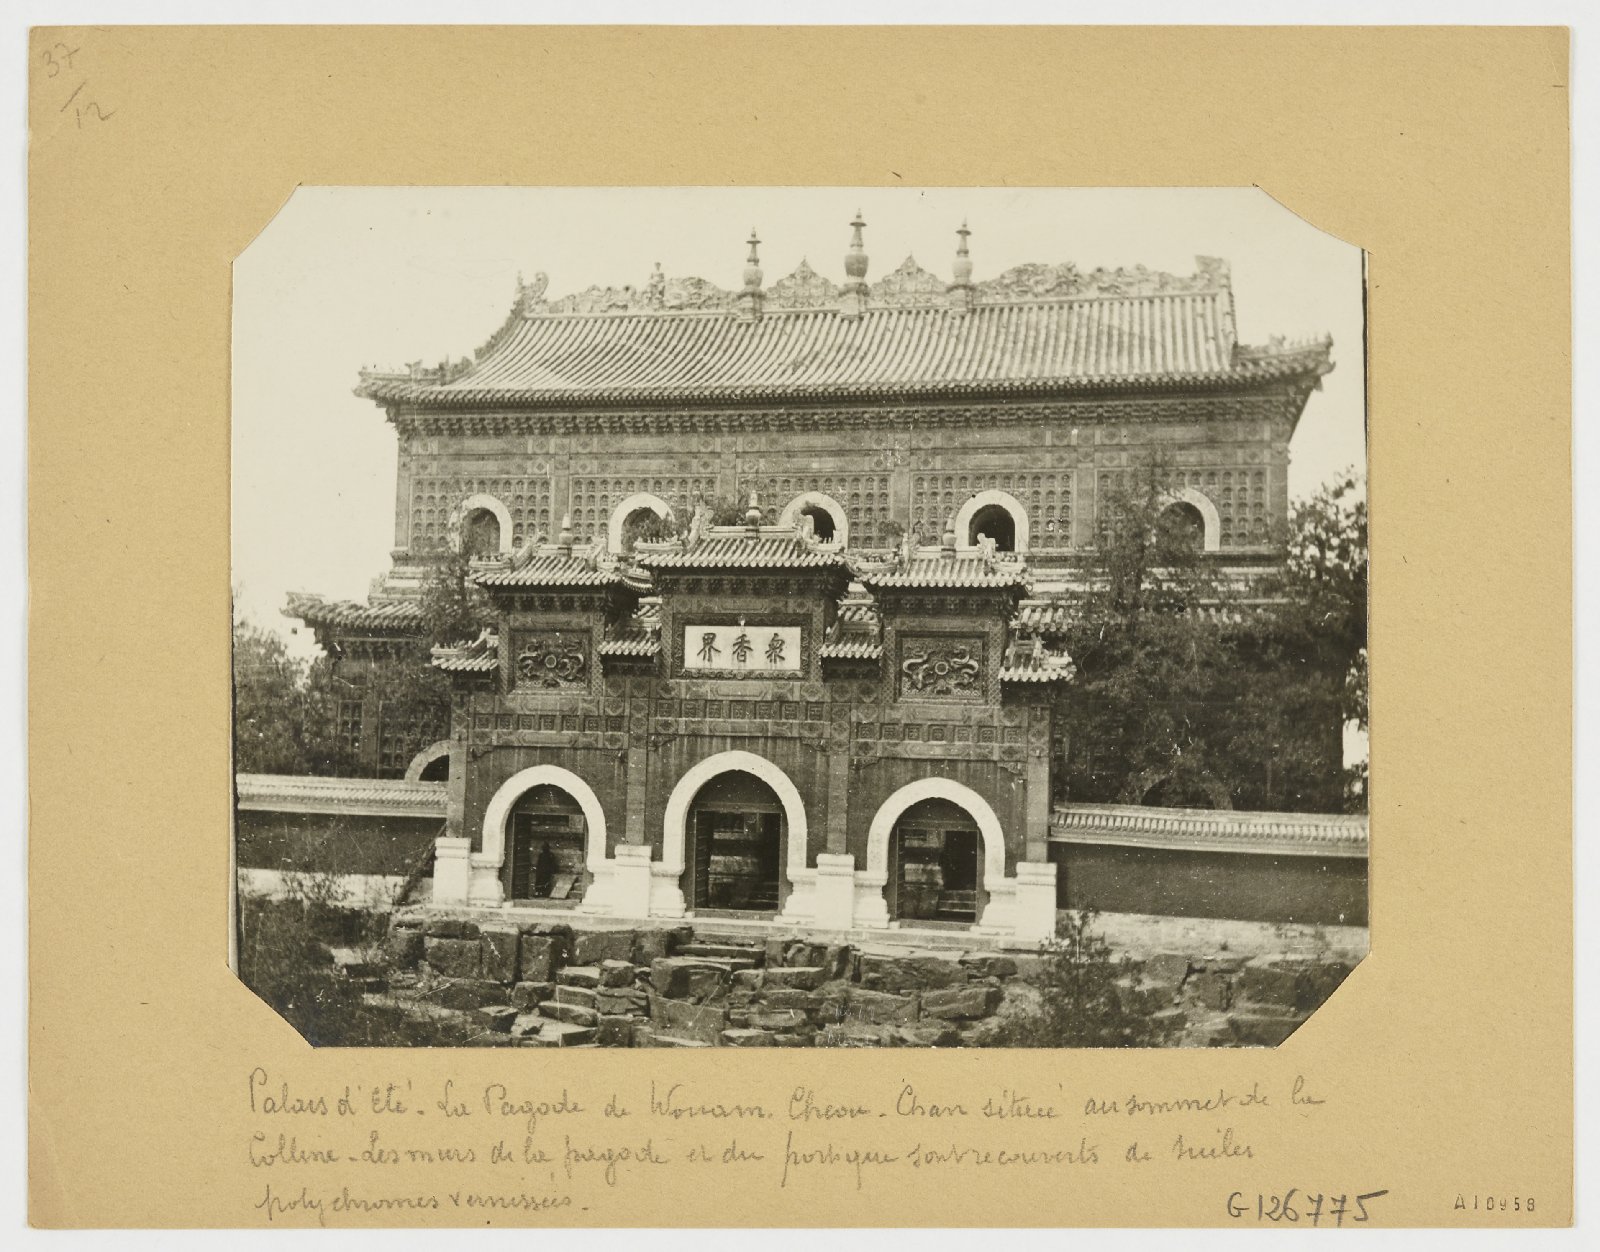 37
/12
界香衆
Palais d'Eté. La Pagode de Wouam. Cheou. Chan située au sommet de la
Colline. Les murs de la pagode et du portique sont recouverts de tuiles
polychromes vernissées.
G126775
A10958